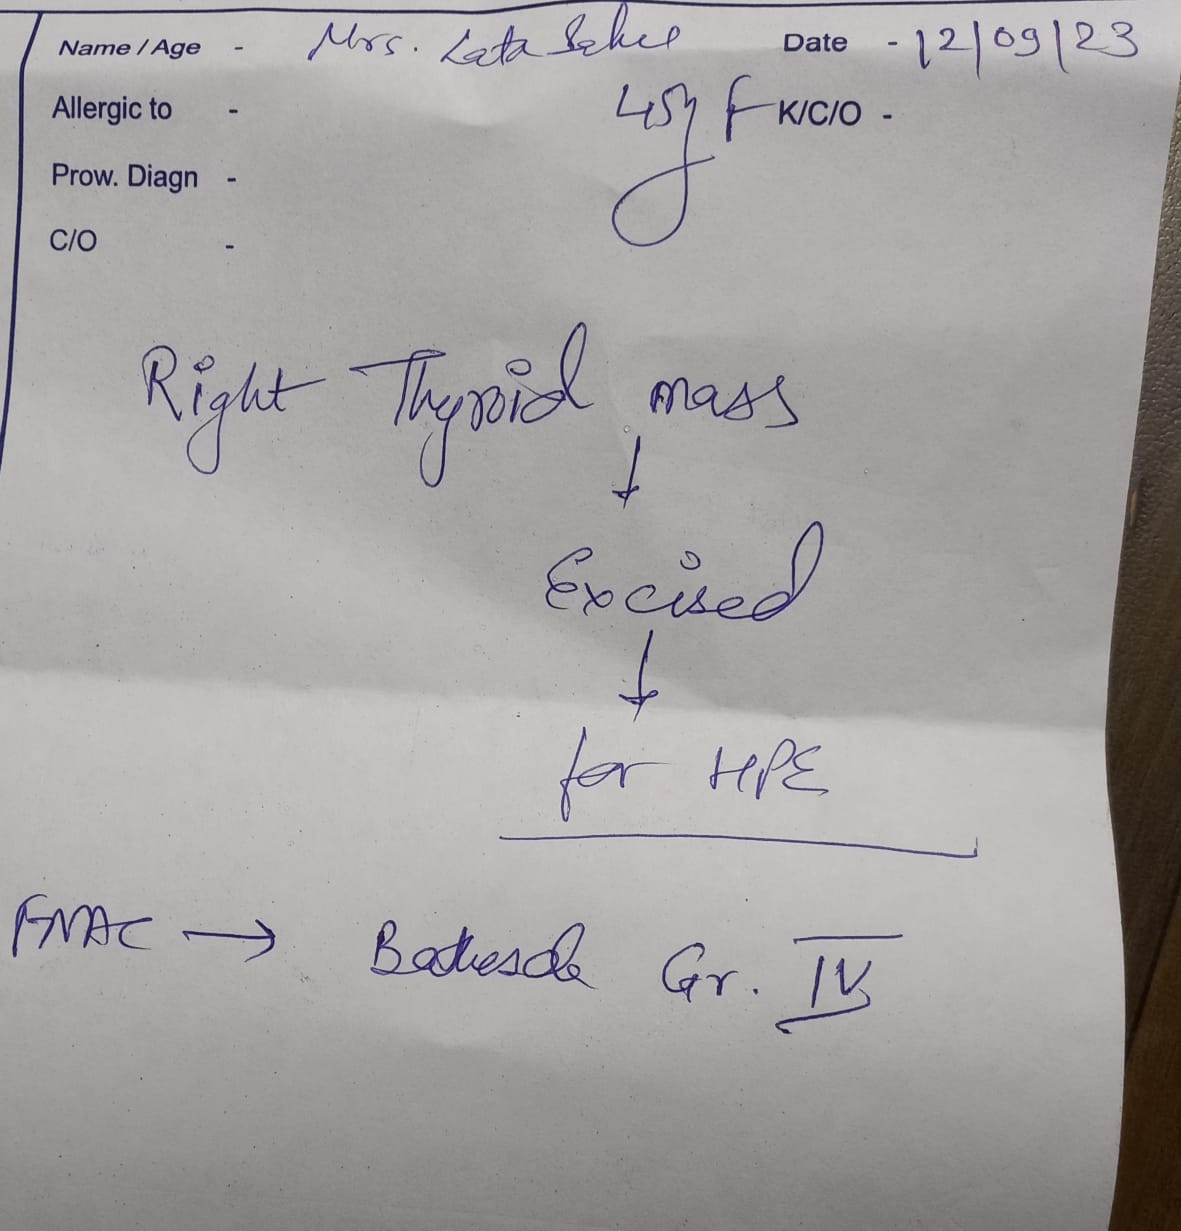 Name / Age - Mrs. Lata Date - 12/09/23
Allergic to - 45y F K/C/O -
Prow. Diagn -
C/O -
Right Thyroid mass
↓
Excised
↓
for HPE
FNAC → Bethesda Gr. IV